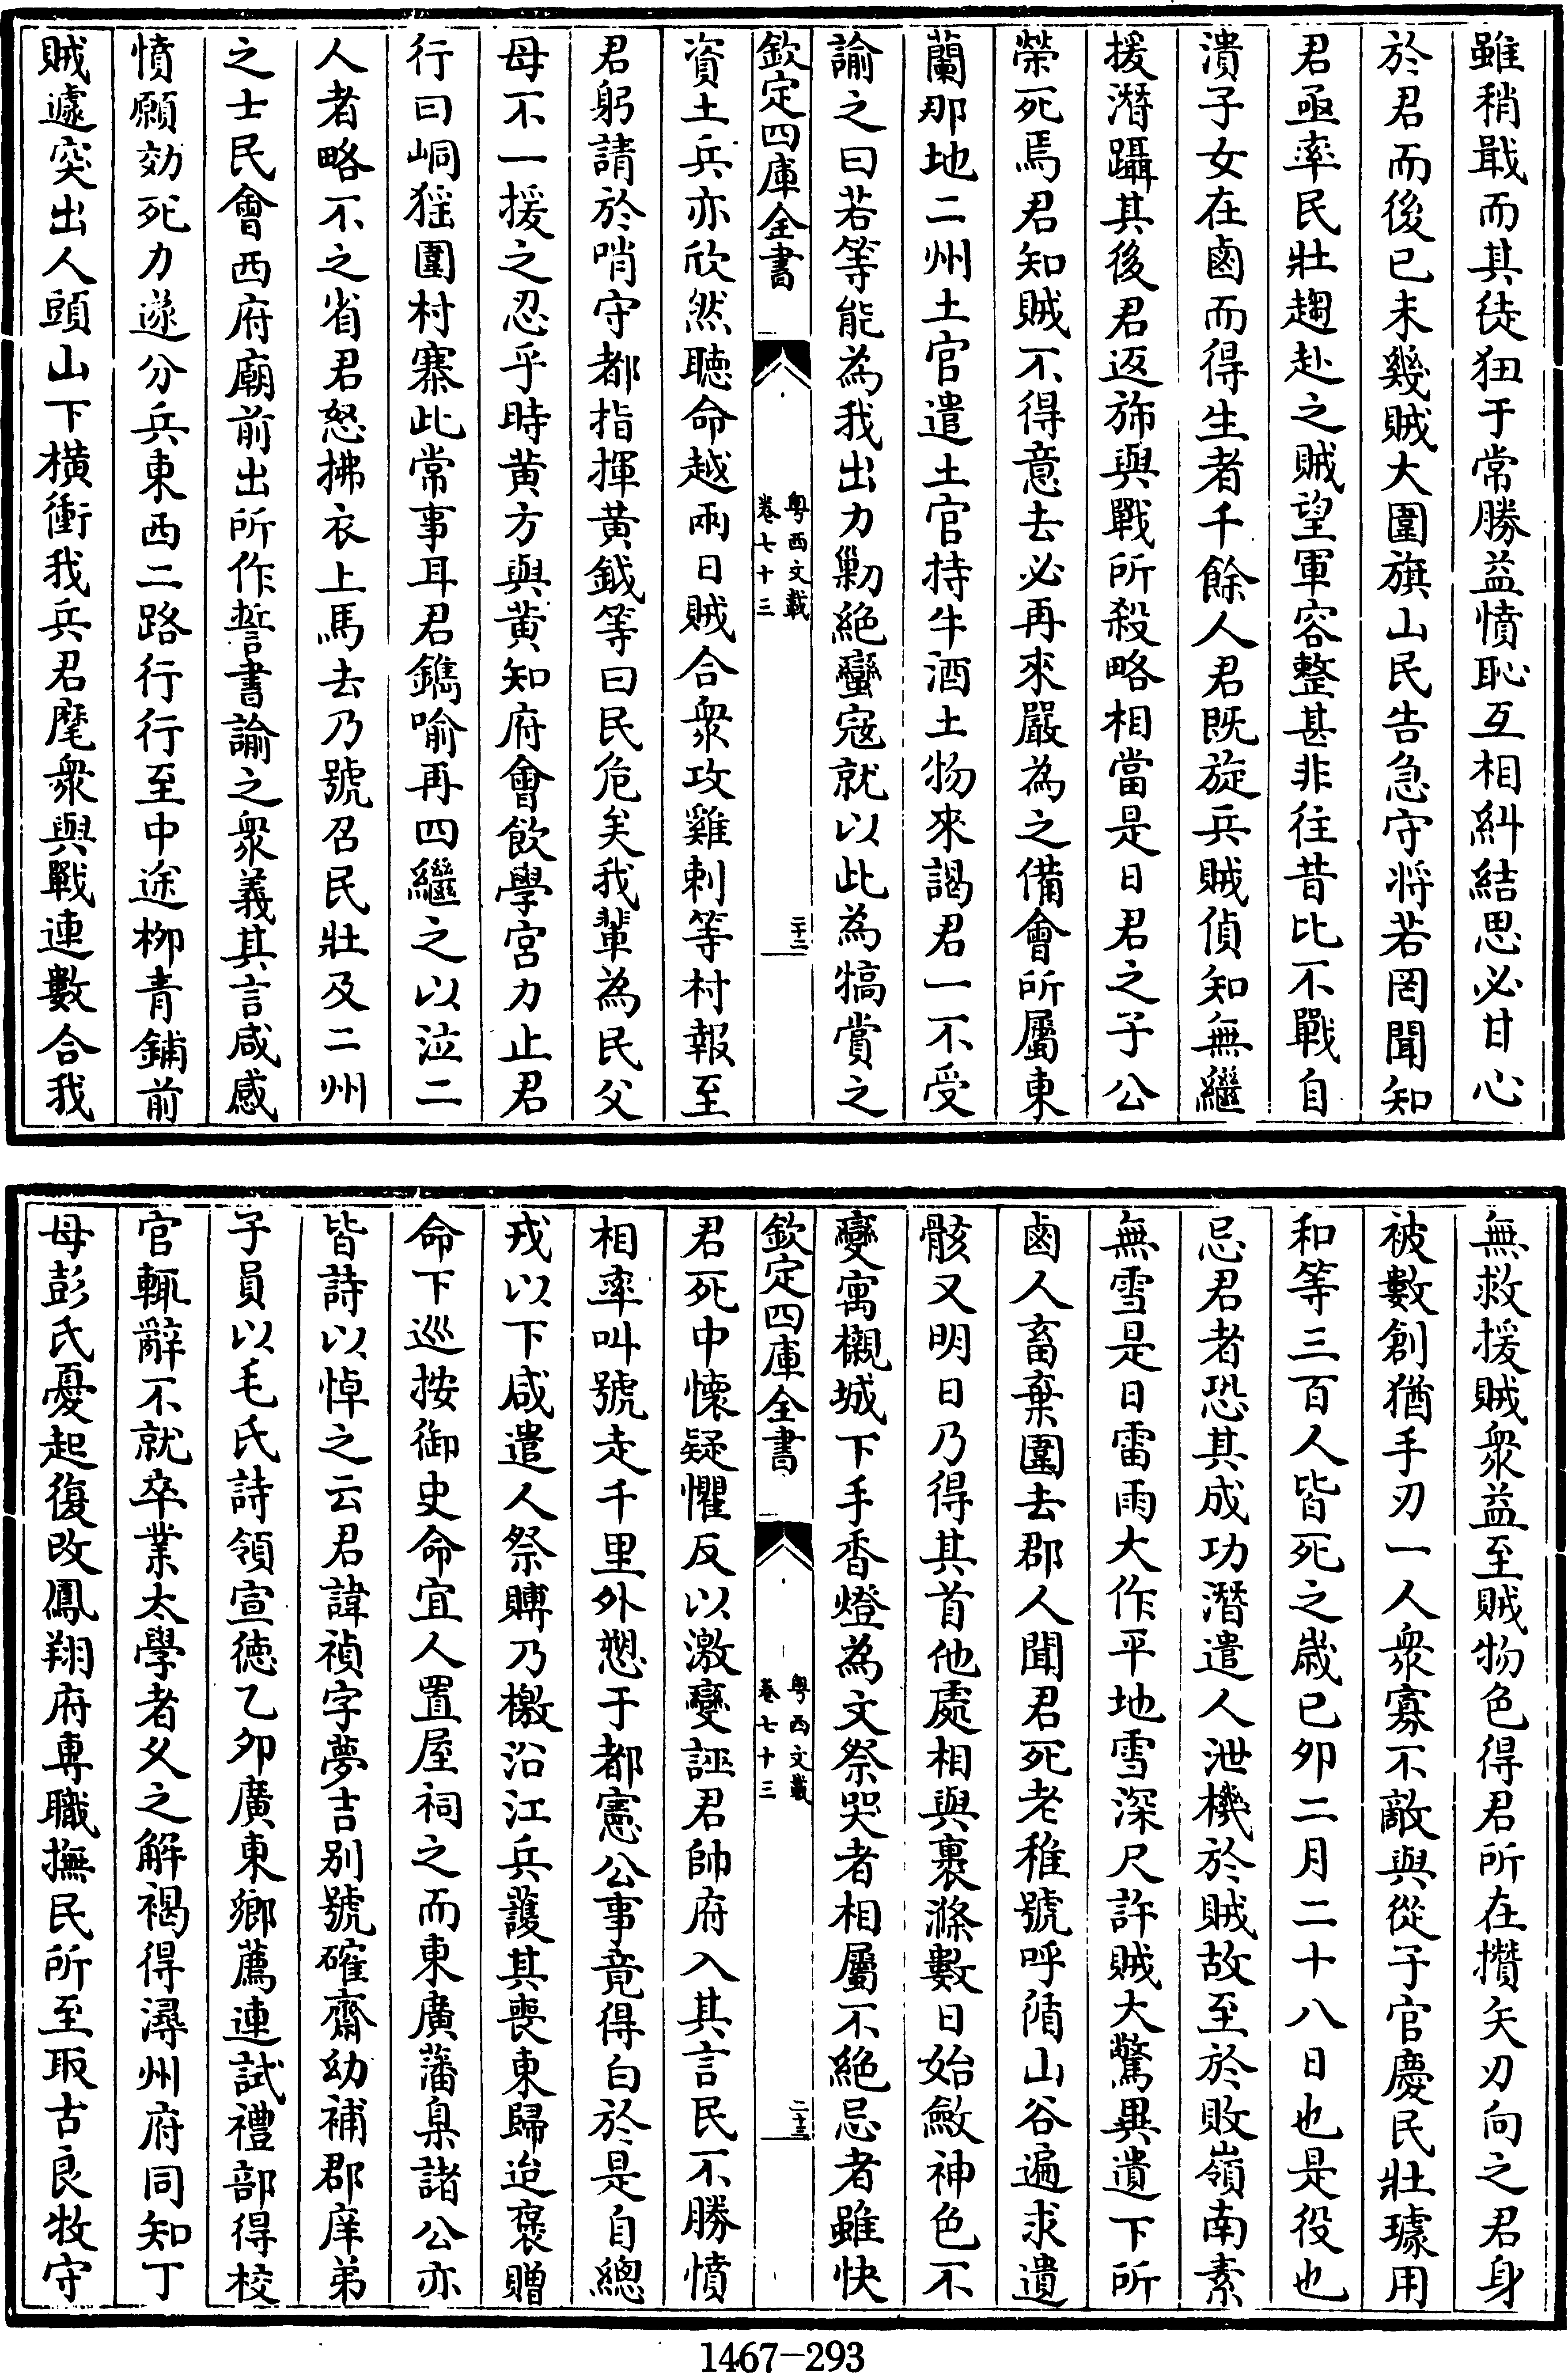 雖稍戢而其徒狃于常勝益憤恥互相糾結思必甘心
於君而後已未幾賊大圍旗山民告急守將若罔聞知
君亟率民壯趨赴之賊望軍容整甚非往昔比不戰自
潰子女在鹵而得生者千餘人君既旋兵賊偵知無繼
援潛躡其後君返斾與戰所殺略相當是日君之子公
榮死焉君知賊不得意去必再來嚴為之備會所屬東
蘭那地二州土官遣土官持牛酒土物來謁君一不受
諭之曰若等能為我出力勦絶蠻寇就以此為犒賞之
欽定四庫全書
粤西文載
卷七十三
二十二
資土兵亦欣然聽命越兩日賊合衆攻雞刺等村報至
君躬請於哨守都指揮黄鉞等曰民危矣我輩為民父
母不一援之忍乎時黄方與黄知府會飲學宮力止君
行曰峒猺圍村寨此常事耳君鐫喻再四繼之以泣二
人者略不之省君怒拂衣上馬去乃號召民壯及二州
之士民會西府廟前出所作誓書諭之衆義其言咸感
憤願効死力遂分兵東西二路行行至中途柳青鋪前
賊遽突出人頭山下橫衝我兵君麾衆與戰連數合我
無救援賊衆益至賊物色得君所在攢矢刃向之君身
被數創猶手刃一人衆寡不敵與從子官慶民壯璩用
和等三百人皆死之歲已夘二月二十八日也是役也
忌君者恐其成功潛遣人泄機於賊故至於敗嶺南素
無雪是日雷雨大作平地雪深尺許賊大驚異遺下所
鹵人畜棄圍去郡人聞君死老稚號呼循山谷遍求遺
骸又明日乃得其首他處相與裹滌數日始斂神色不
變寓櫬城下手香燈為文祭哭者相屬不絶忌者雖快
欽定四庫全書
粤西文載
卷七十三
二十三
君死中懐疑懼反以激變誣君帥府入其言民不勝憤
相率叫號走千里外愬于都憲公事竟得白於是自總
戎以下咸遣人祭賻乃檄沿江兵護其喪東歸迨褒贈
命下巡按御史命宜人置屋祠之而東廣藩臬諸公亦
皆詩以悼之云君諱禎字夢吉别號確齋幼補郡庠弟
子員以毛氏詩領宣徳乙夘廣東鄉薦連試禮部得校
官輒辭不就卒業太學者乆之解褐得潯州府同知丁
母彭氏憂起復改鳳翔府専職撫民所至取古良牧守
1467-293